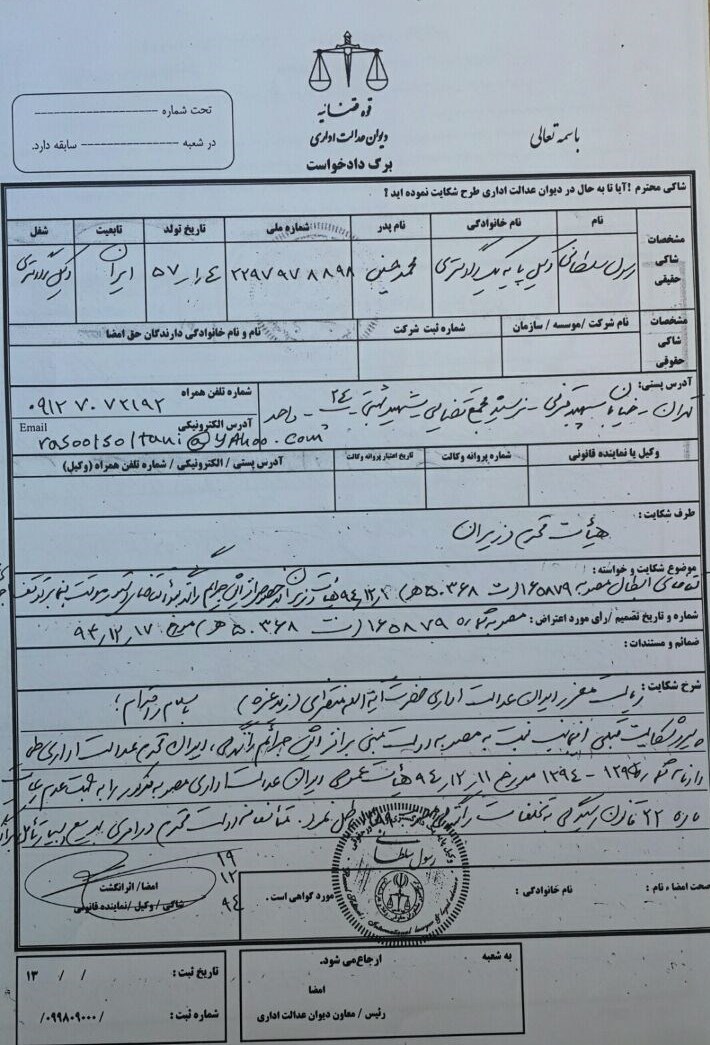 باسمه تعالی
قوه قضائیه
دیوان عدالت اداری
برگ دادخواست
تحت شماره
در شعبه سابقه دارد.
شاکی محترم ! آیا تا به حال در دیوان عدالت اداری طرح شکایت نموده اید ؟
مشخصات شاکی حقیقی نام نام خانوادگی نام پدر شماره ملی تاریخ تولد تابعیت شغل
رسول سلطانی وکیل پایه یک دادگستری محمد حسین ۲۲۹۷۹۷۸۸۹۸ ایران وکیل دادگستری
مشخصات شاکی حقوقی نام شرکت /موسسه / سازمان شماره ثبت شرکت نام و نام خانوادگی دارندگان حق امضا
آدرس پستی: تهران - خیابان شهید قرنی - نرسیده مجتمع قضایی شهید بهشتی - پ ۲۴ - واحد
شماره تلفن همراه ۰۹۱۲۷۰۷۲۱۹۲
آدرس الکترونیکی Email
rasoolsoltani@yahoo.com
وکیل یا نماینده قانونی شماره پروانه وکالت تاریخ اعتبار پروانه وکالت آدرس پستی / الکترونیکی / شماره تلفن همراه (وکیل)
طرف شکایت :
هیأت محترم وزیران
موضوع شکایت و خواسته :
تقاضای ابطال مصوبه ۱۶۵۸۷۹ (ت ۵۰۳۶۸ هـ)
شماره و تاریخ تصمیم /رأی مورد اعتراض : مصوبه شماره ۱۶۵۸۷۹ (ت ۵۰۳۶۸ هـ) مورخ ۹۴,۱۲,۱۷
ضمائم و مستندات :
شرح شکایت : ریاست معزز دیوان عدالت اداری حضرت آیة الله منتظری (زید عزه) با سلام و احترام ؛
پیرو شکایت قبلی اینجانب نسبت به مصوبه دولت مبنی بر افزایش جرائم رانندگی، دیوان محترم عدالت اداری طی
دادنامه شماره ۱۲۹۵ - ۱۳۹۴ مورخ ۹۴,۱۲,۱۱ هیأت عمومی دیوان عدالت اداری مصوبه مزکور را به علت عدم رعایت
ماده ۲۲ قانون رسیدگی به تخلفات رانندگی ابطال نمود. متأسفانه دولت محترم در امری بدیع و بسیار
۱۹
۱۲
۹۴
امضا/ اثر انگشت
شاکی / وکیل /نماینده قانونی
رسول سلطانی
صحت امضاء ، نام : نام خانوادگی : مورد گواهی است .
به شعبه ارجاع می شود.
امضا
رئیس / معاون دیوان عدالت اداری
تاریخ ثبت : / / ۱۳
شماره ثبت : /۰۹۹۸۰۹۰۰۰/